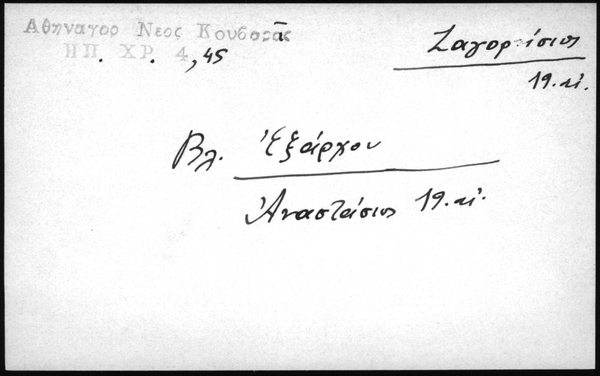 Αθηναγορ Νεος Κουβαρᾶς
ΗΠ. ΧΡ. 4,45
Ζαγορίσιος
19. αἰ.
Βλ. Ἐξάρχου
Ἀναστάσιος 19. αἰ.